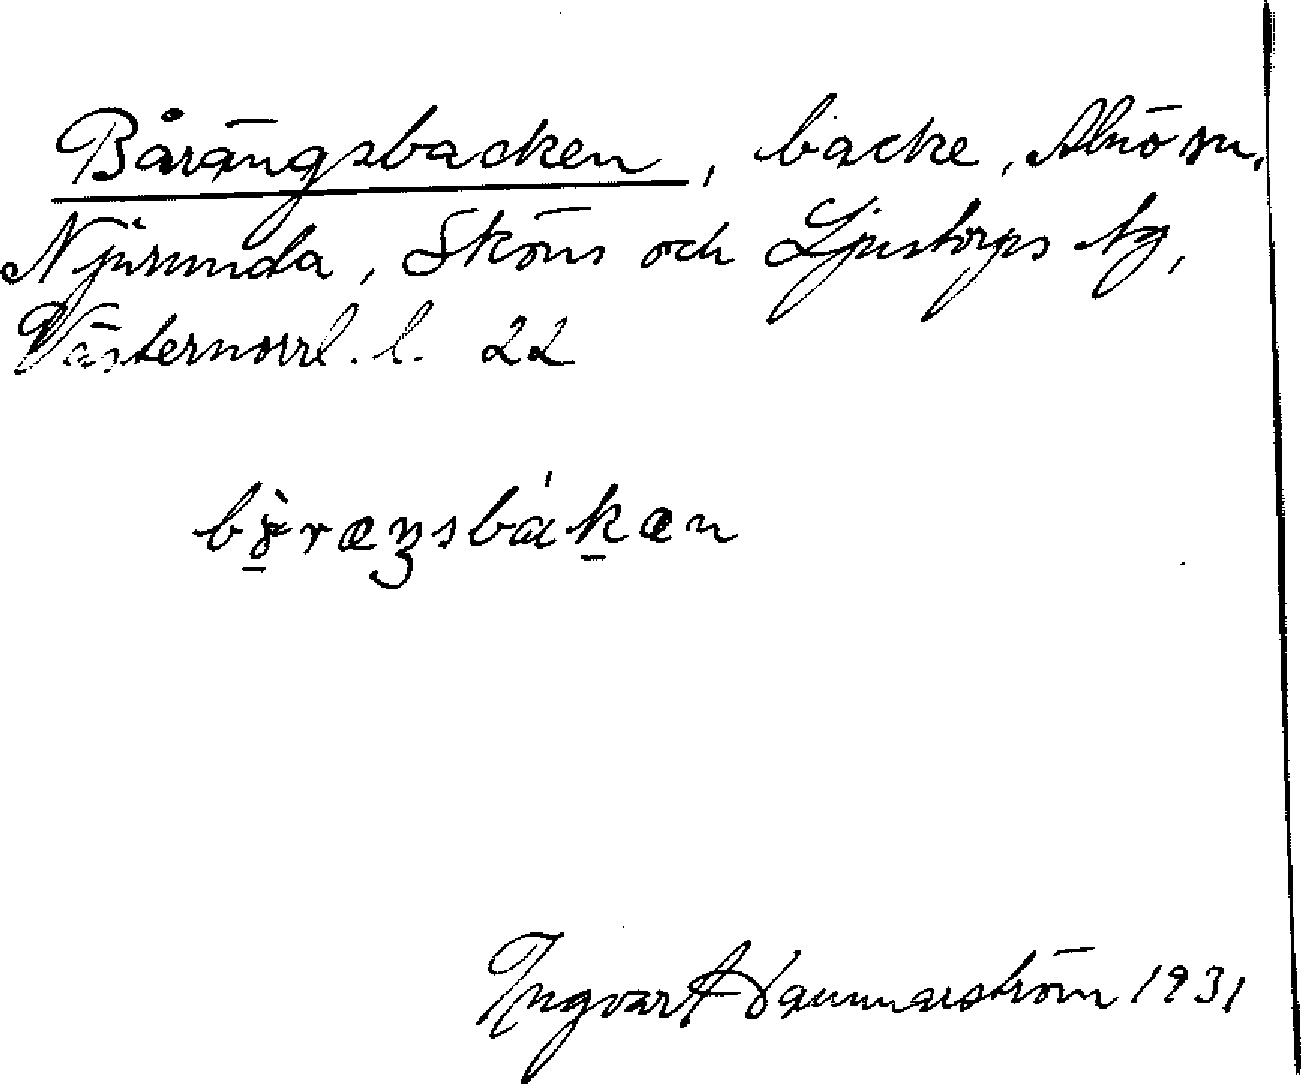 Bårängsbacken, backe, Alnö sn,
Njurunda, Sköns och Ljustorps tg,
Västernorrl. l. 22
Ingvar Hammarström 1931